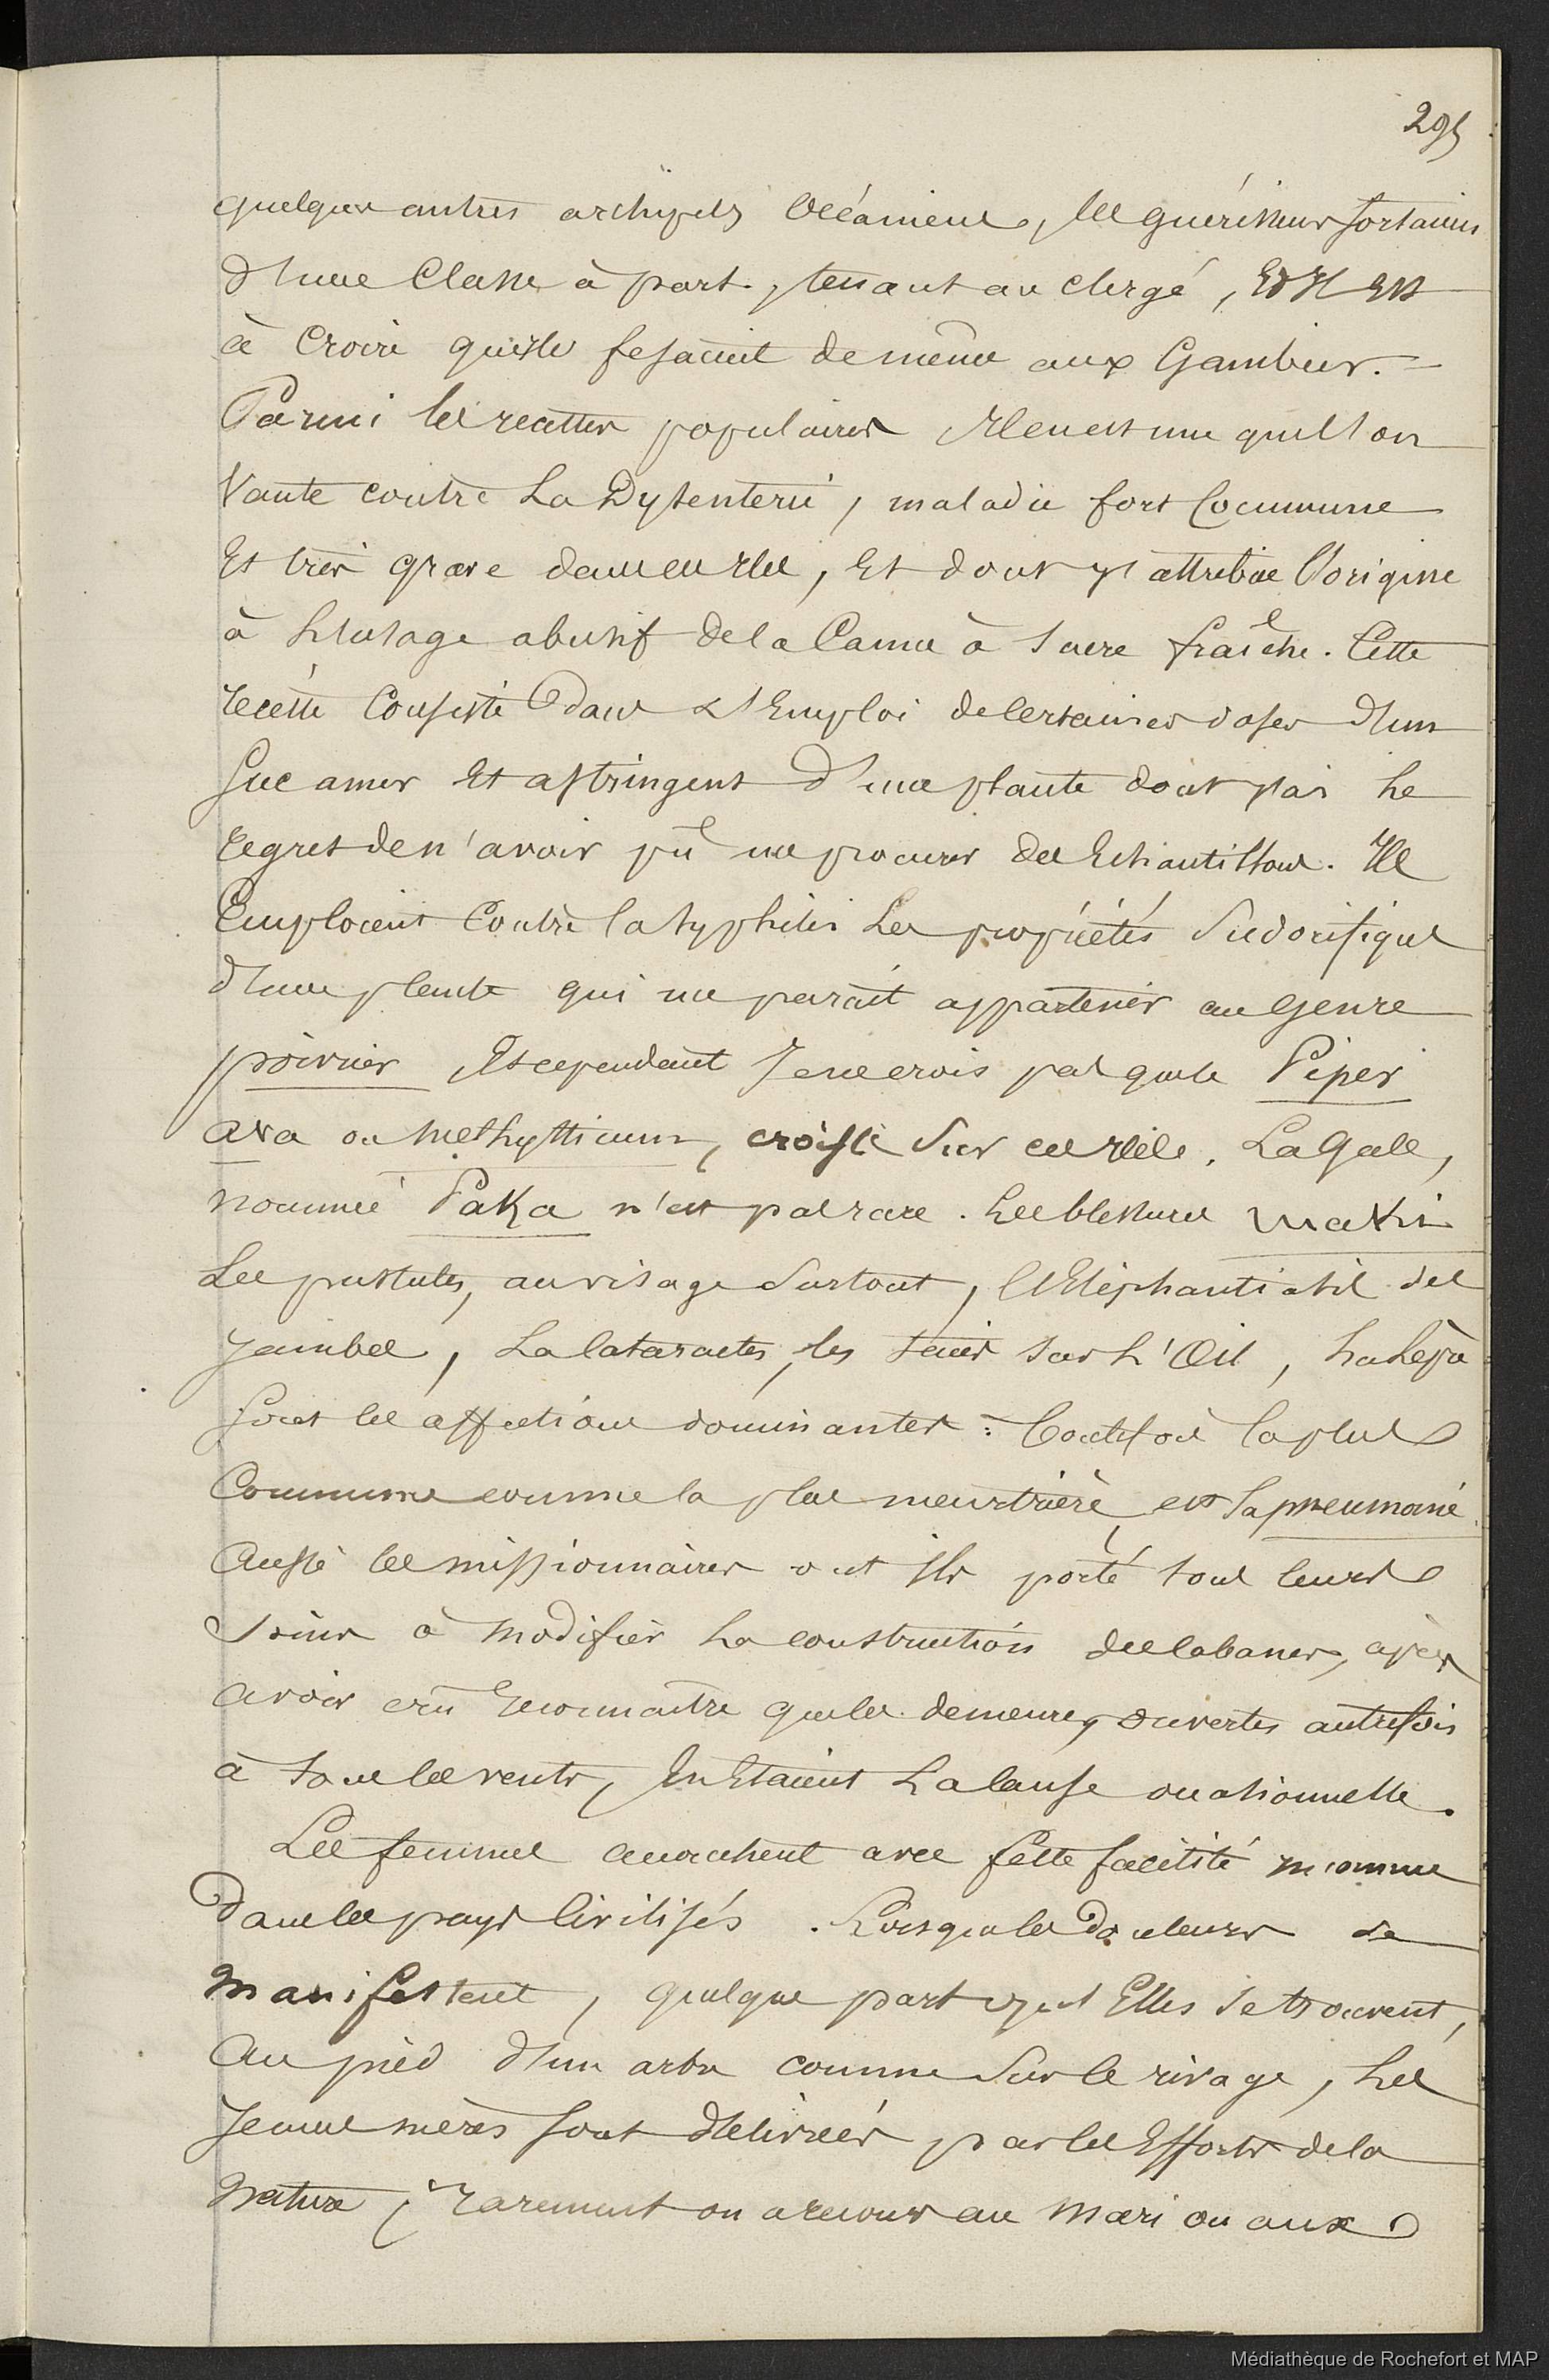 295
quelques autres archipels Océaniens, les guérisseurs sortaient
d'une Classe à part, tenant au clergé, Et Il Est
à Croire qu'ils fesaient de même aux Gambier. =
Parmi les recettes populaires Il en est une que l'on
Vante contre La Dysenterie, maladie fort Commune
Et très grave dans ces Iles, Et dont j'attribue l'origine
à L'usage abusif de la Canne à sucre fraîche. Cette
recette Consiste Dans L'Emploi de certaines doses d'un
Suc amer Et astringent d'une plante dont j'ai Le
regret de n'avoir pû me procurer des Echantillons. Ils
Emploient Contre la syphilis Les propriétés Sudorifiques
d'une plante qui me paraît appartenir au Genre
poivrier, Et cependant Je ne crois pas que le Piper
ava ou methysticum, croisse Sur ces Iles. La Gale,
nommée Paka n'est pas rare. Les blessures makis
Les pustules, au visage Surtout, l'Eléphantiasis des
Jambes, La Cataractes, les taies sur L'Œil, La Lèpre
Sont les affections dominantes: toutefois la plus
Commune comme la plus meurtrière, est la pneumonie.
Aussi les missionnaires ont ils porté tous leurs
Soins à modifier La construction des Cabanes, après
avoir crû reconnaitre que les demeures ouvertes autrefois
à tous les vents, En Etaient La cause occasionnelle.
Les femmes accouchent avec cette facilité inconnue
Dans les pays Civilisés. Lorsque les Douleurs se
manifestent, quelque part qu'Elles se trouvent,
Au pied d'un arbre comme Sur le rivage, Les
Jeunes mères sont délivrées par les Efforts de la
Nature; rarement on a recours au Mari ou aux
Médiathèque de Rochefort et MAP